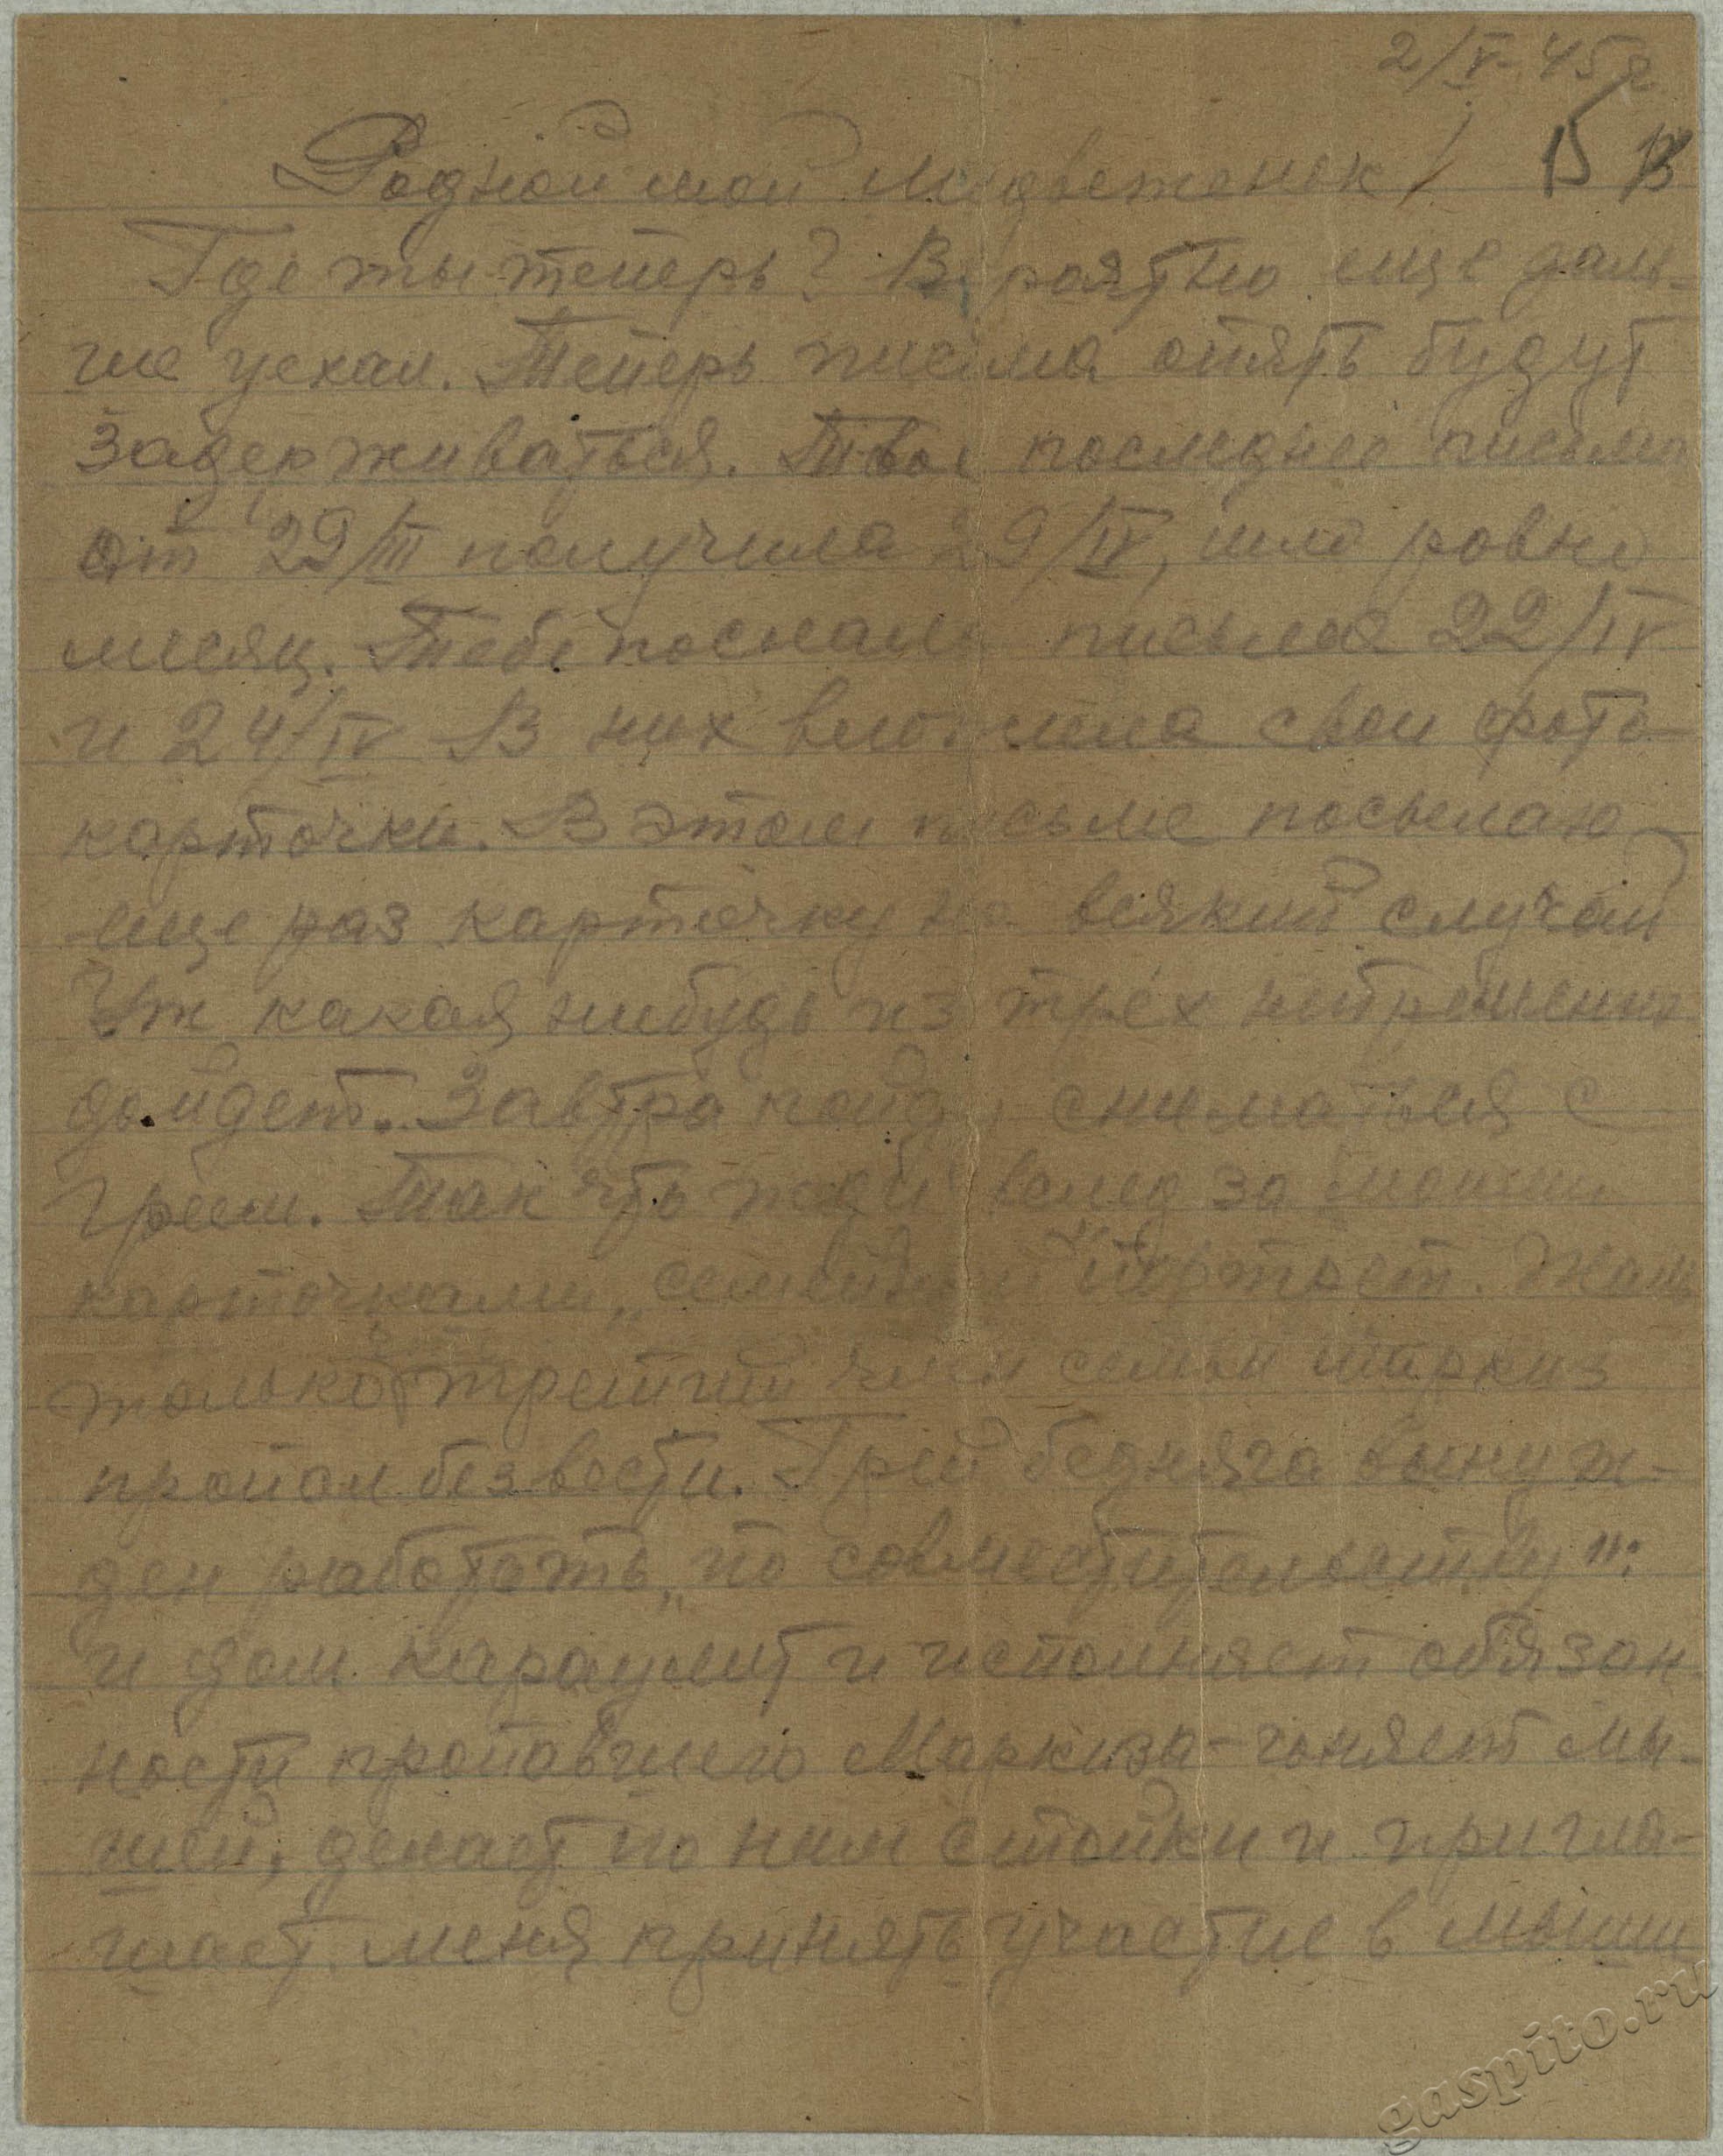 2/V-45 г
Родной мой Медвеженок!
15
Где ты теперь? Вероятно еще даль-
ше уехал. Теперь письма опять будут
задерживаться. Твое последнее письмо
от 29/III получила 29/IV, шло ровно
месяц. Тебе послала письма 22/IV
и 24/IV В них вложила свои фото-
карточки. В этом письме посылаю
еще раз карточку на всякий случай
Уж какая нибудь из трех непременно
дойдет. Завтра пойду сниматься с
Греем. Так что жди вслед за моими
карточками „семейный" портрет. Жаль
только третий член семьи маркиз
пропал без вести. Грей бедняга вынуж-
ден работать „по совместительству":
и дом караулит и исполняет обязан
ности пропавшего Маркиза - гоняет мы-
шей, делает по ним стойки и пригла-
шает меня принять участие в мыши
gaspito.ru